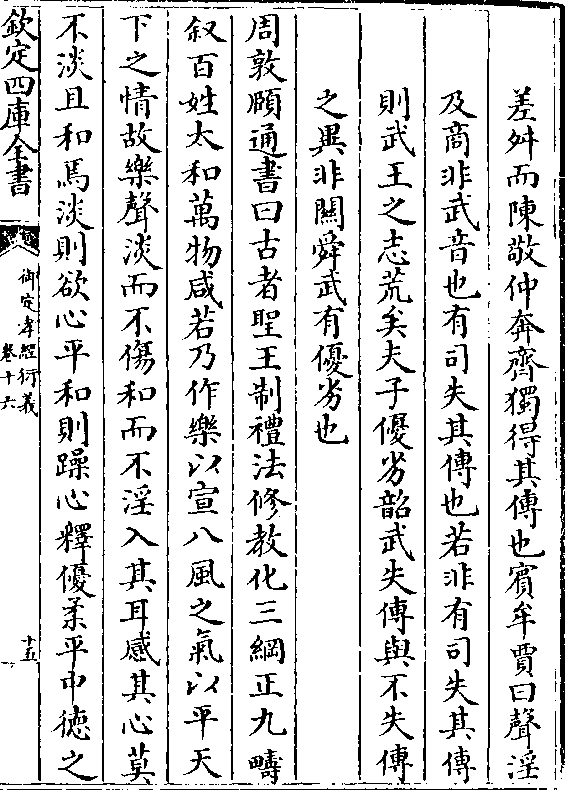 差舛而陳敬仲奔齊獨得其傳也賓牟賈曰聲淫
及商非武音也有司失其傳也若非有司失其傳
則武王之志荒矣夫子優劣韶武失傳與不失傳
之異非關舜武有優劣也
周敦頤通書曰古者聖王制禮法修教化三綱正九疇
叙百姓太和萬物咸若乃作樂以宣八風之氣以平天
下之情故樂聲淡而不傷和而不淫入其耳感其心莫
不淡且和焉淡則欲心平和則躁心釋優柔平中徳之
欽定四庫全書
御定孝經衍義
卷十六
十五